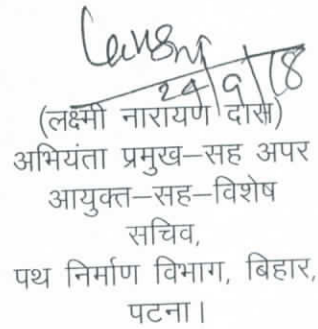 24/9/18
(लक्ष्मी नारायण दास)
अभियंता प्रमुख–सह अपर
आयुक्त–सह–विशेष
सचिव,
पथ निर्माण विभाग, बिहार,
पटना।